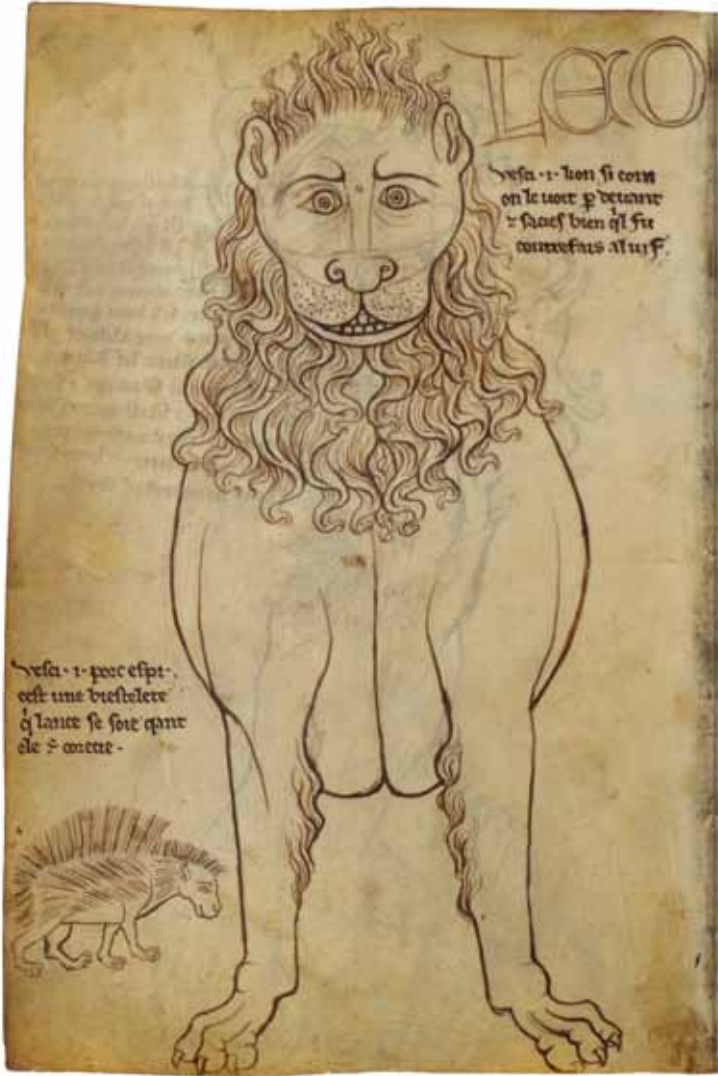 LEO
Vesci ·i· lion si com
on le voit p devant
⁊ sacies bien ql fu
contrefais al vif.
Vesci ·i· porc espi·
cest une biestelete
q̇ lance se soie qant
ele ÷ corecie·